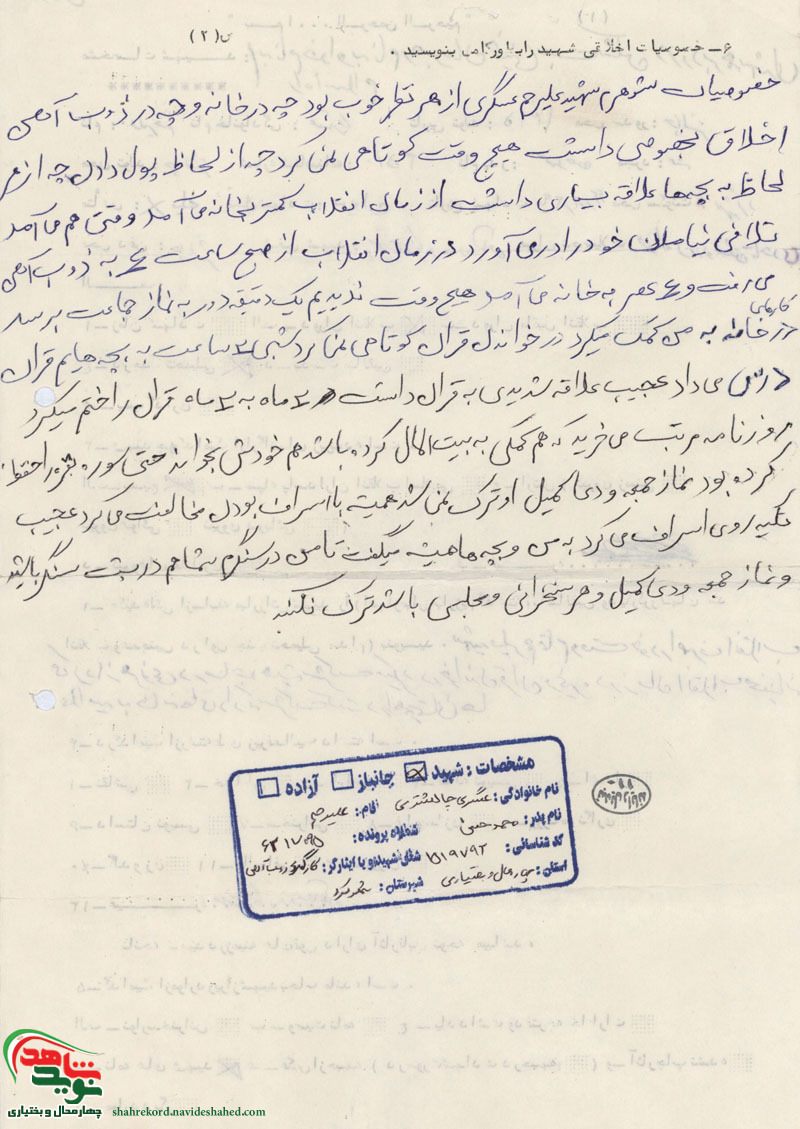 ص (۲)
۶ـ خصوصیات اخلاقی شهید را بطور کامل بنویسید.
خصوصیات شوهرم شهید علیرحم عسگری از هر نظر خوب بود چه در خانه و چه در ذوب آهن
اخلاق بخصوصی داشت هیچ وقت کوتاهی نمی کرد چه از لحاظ پول دادن چه از هر
لحاظ به بچه‌ها علاقه بسیاری داشت از زمان انقلاب کمتر بخانه می آمد وقتی هم می آمد
تلافی خود را در می آورد در زمان انقلاب از صبح ساعت ۶ به ذوب آهن
می رفت و ۶ عصر به خانه می آمد هیچ وقت ندیدیم یک دقیقه دور به نماز جماعت برسد
در کارهای خانه به من کمک میکرد در خواندن قرآن کوتاهی نمی کرد شبی ۲ ساعت به بچه هایم قرآن
درس می داد عجیب علاقه شدیدی به قرآن داشت ۲ ماه به ۲ ماه قرآن را ختم میکرد
روزنامه مرتب می خرید که هم کمکی به بیت المال کرده باشد هم خودش بخواند حتی سوره بقره را حفظ
کرده بود نماز جمعه و دعا کمیل او ترک نمی شد همیشه با اسراف بودن مخالفت می کرد عجیب
تکیه روی اسراف می کرد به من و بچه ها همیشه میگفت تا من در سنگرم شما هم در پشت سنگر باشید
و نماز جمعه و دعا کمیل و هر سخنرانی و مجلسی باشد ترک نکنید
مشخصات : شهید ☒ جانباز ☐ آزاده ☐
نام خانوادگی : عسگری چالشتری نام : علیرحم
نام پدر : محمد حسن شماره پرونده : ۶۳۱۷۰۹۵
کد شناسائی : ۱۵۱۹۷۹۲ شغل شهید و یا ایثارگر : کارگر ذوب آهن
استان : چهارمحال و بختیاری شهرستان : شهرکرد
نوید شاهد
چهارمحال و بختیاری
shahrekord.navideshahed.com